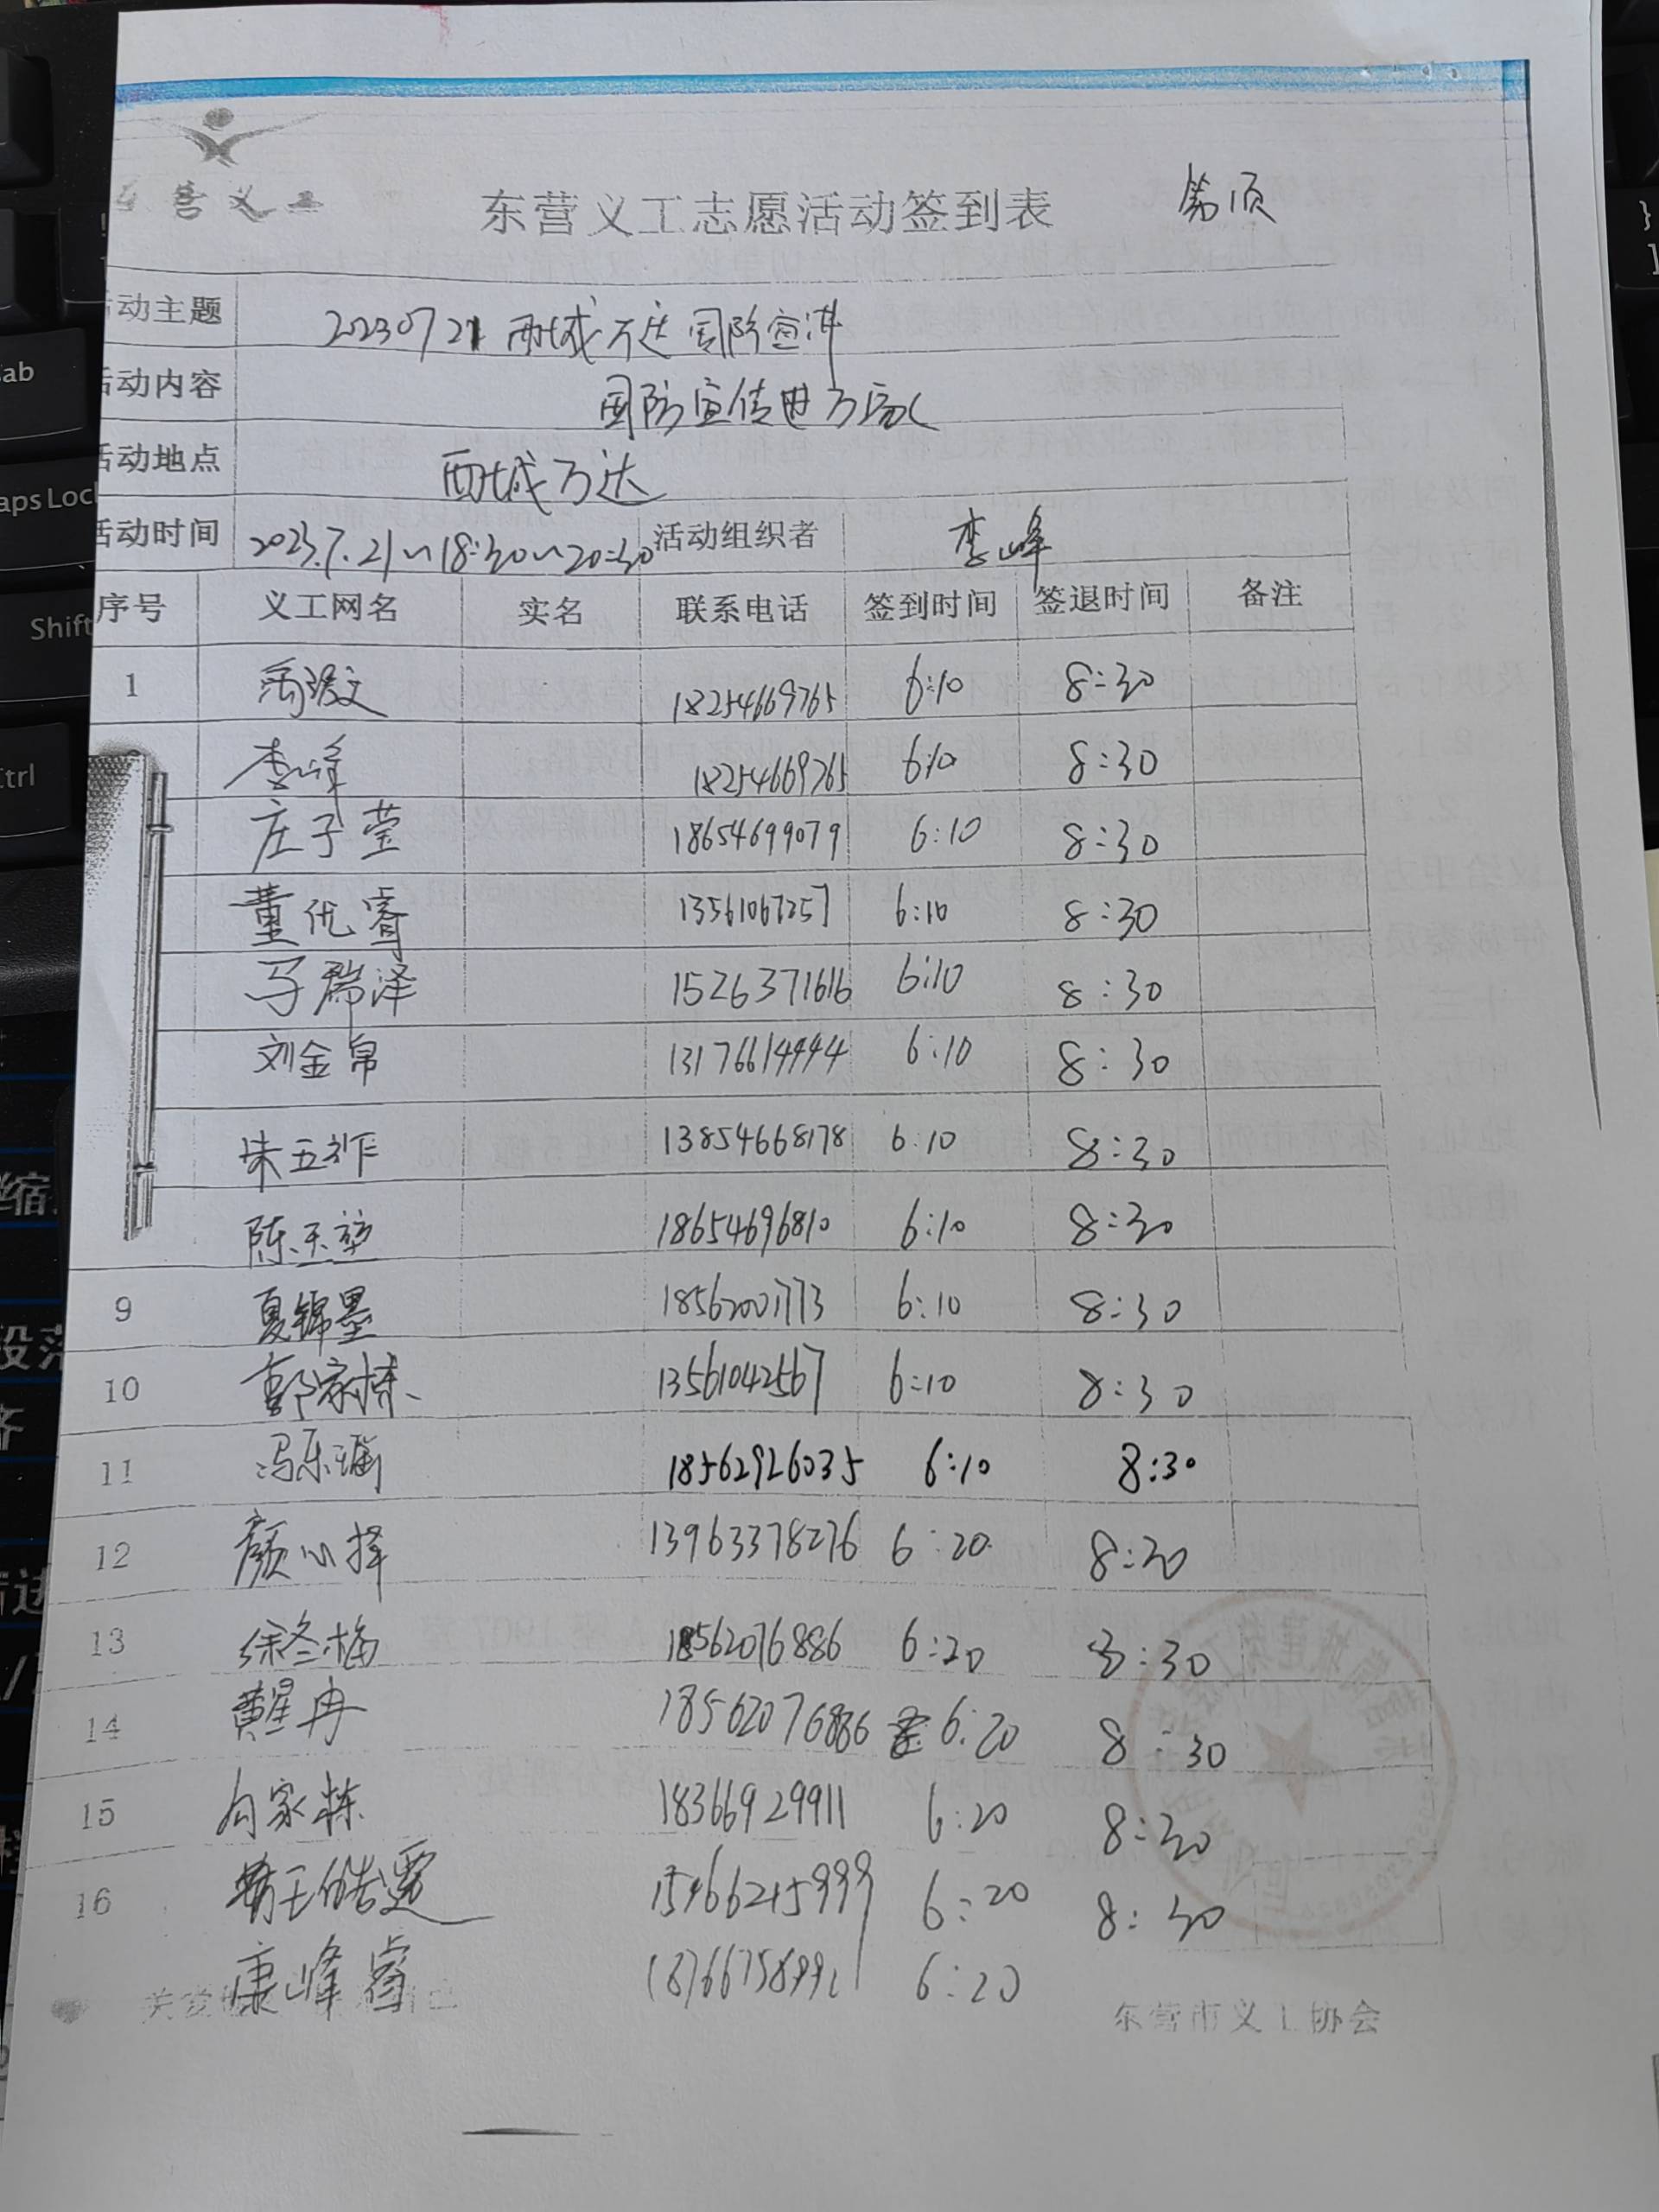 东营义工
东营义工志愿活动签到表 第 页
活动主题 20230721 西城万达国防宣讲
活动内容 国防宣传进万家
活动地点 西城万达
活动时间 2023.7.21~18:30~20:30 活动组织者 李峰
序号 义工网名 实名 联系电话 签到时间 签退时间 备注
1 18254669765 6:10 8:30
李峰 18254669765 6:10 8:30
庄子莹 18654699079 6:10 8:30
董优睿 13561067257 6:10 8:30
马瑞泽 15263771616 6:10 8:30
刘金帛 13176614444 6:10 8:30
朱五 13854668178 6:10 8:30
陈 18654696810 6:10 8:30
9 夏锦墨 18562001773 6:10 8:30
10 郭家栋 13561042567 6:10 8:30
11 冯乐瑶 18562926035 6:10 8:30
12 颜心择 13963378276 6:20 8:30
13 徐冬梅 18562076886 6:20 8:30
14 黄星冉 18562076886 6:20 8:30
15 向家栋 18366929911 6:20 8:30
16 王皓霆 15466215999 6:20 8:30
康峰睿 6:20
东营市义工协会